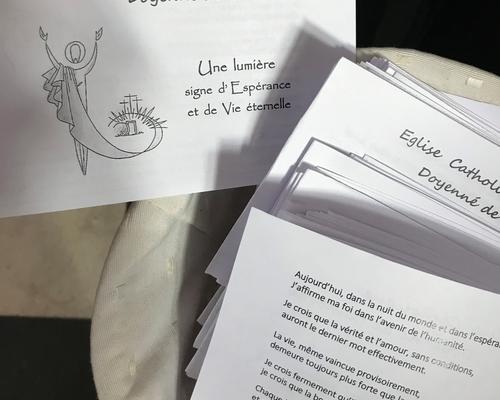 Doyenné
Une lumière
signe d'Espérance
et de Vie éternelle
Eglise Catholi
Doyenné de
Aujourd'hui, dans la nuit du monde et dans l'espéra
J'affirme ma foi dans l'avenir de l'humanité.
Je crois que la vérité et l'amour, sans conditions,
auront le dernier mot effectivement.
La vie, même vaincue provisoirement,
demeure toujours plus forte que la
Je crois fermement qu
je crois que la be
Chaque
et